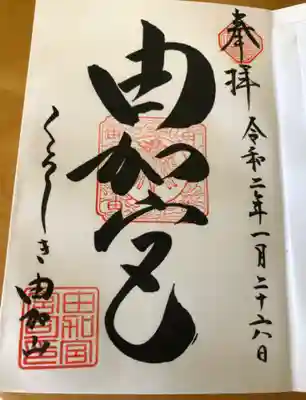 奉拝
令和二年一月二十六日
由加宮
くらしき 由加山